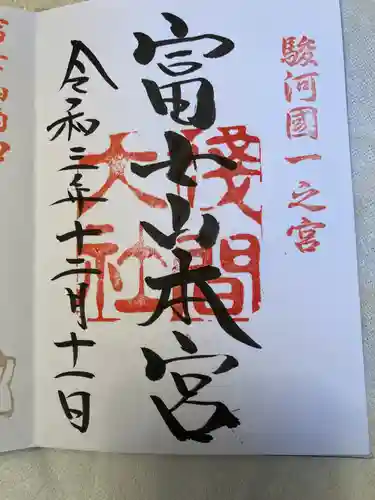 駿河國一之宮
淺間大社
富士山本宮
令和三年十二月十一日